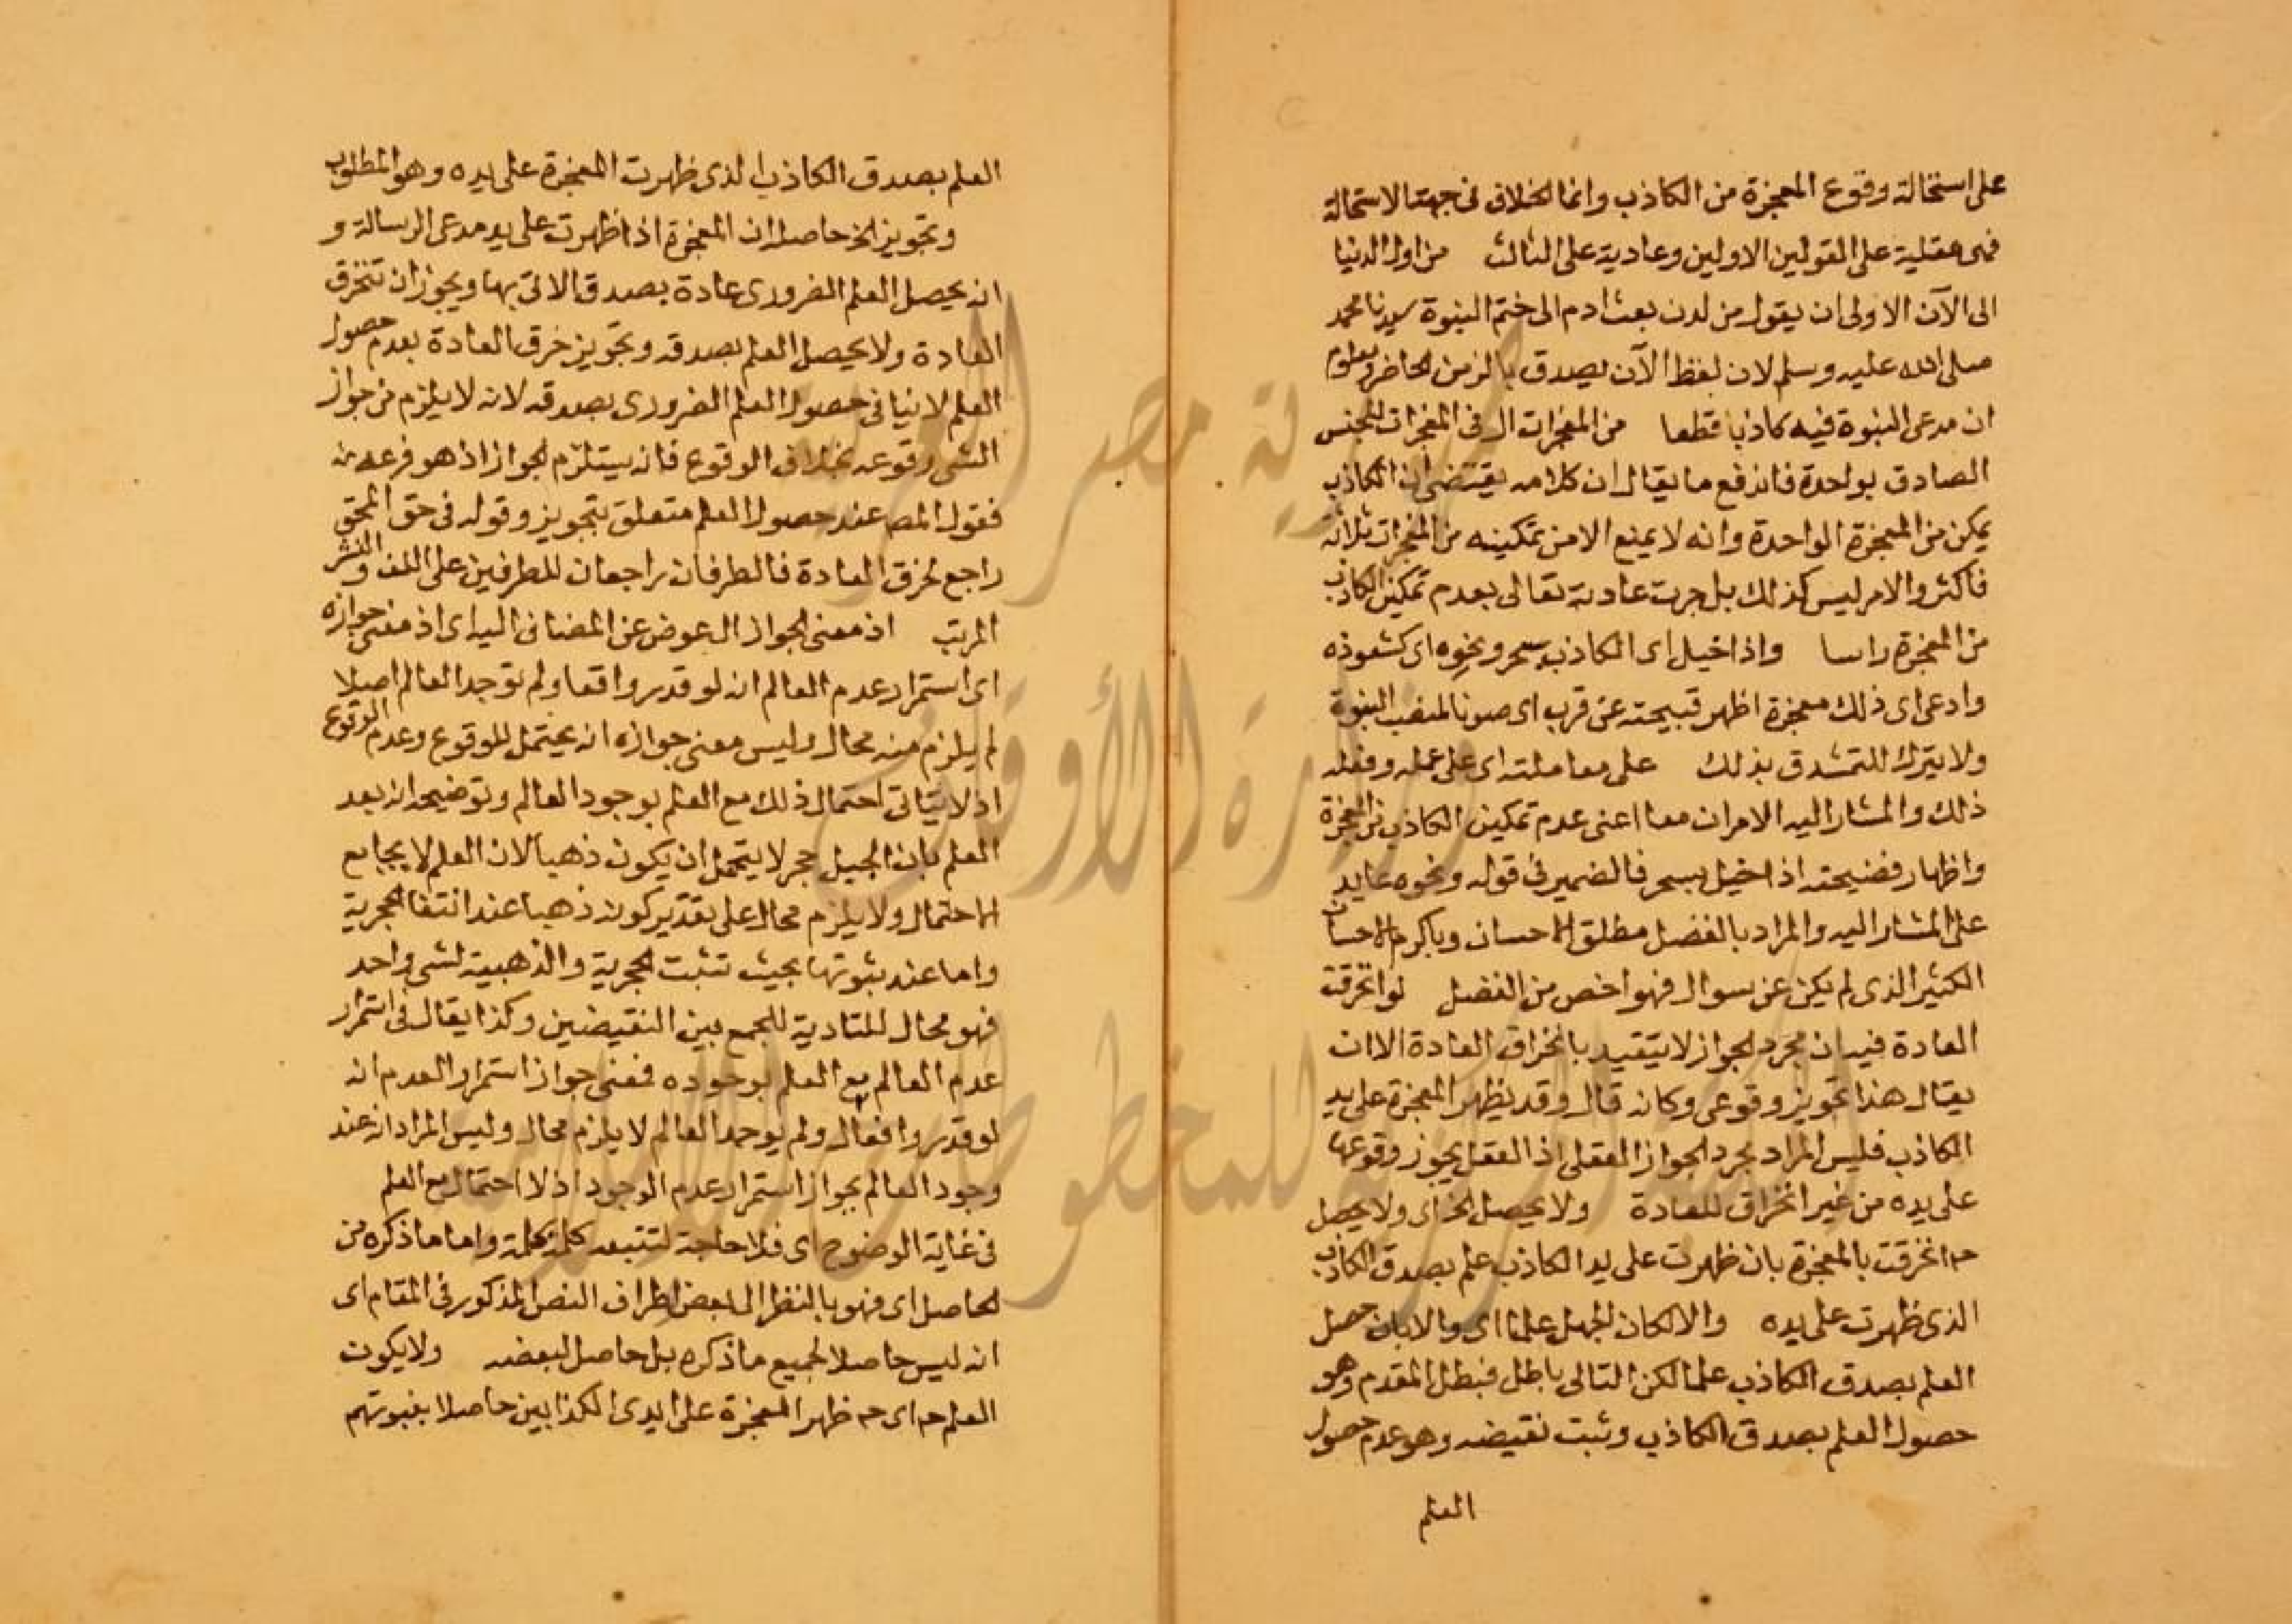 على استحالة وقوع المعجزة من الكاذب وانما الخلاف في جهة الاستحالة
فهى عقلية على القولين الاولين وعادية على الثالث من اول الدنيا
الى الآن الاولى ان يقول من لدن بعث ادم الى ختم النبوة سيدنا محمد
صلى الله عليه وسلم لان لفظ الآن يصدق بالزمن الحاضر ومعلوم
ان مدعى النبوة فيه كاذبا قطعا من المعجزات ال فى المعجزات للجنس
الصادق بواحدة فاندفع ما يقال ان كلامه يقتضى ان الكاذب
يمكن من المعجزة الواحدة وانه لا يمنع الا من تمكينه من المعجزات ثلاثة
فاكثر والامر ليس كذلك بل جرت عادته تعالى بعدم تمكين الكاذب
من المعجزة راسا واذا خيل اى الكاذب بسحر ونحوه اى كشعوذه
وادعى اى ذلك معجزة اظهر فضيحته عن قرب اى صونا لمنصب النبوة
ولا يترك للتمشدق بذلك على معاملته اى على عمله وفعله
ذلك والمشار اليه الامران معا اعنى عدم تمكين الكاذب من المعجزة
واظهار فضيحته اذا خيل بسحر فالضمير في قوله ونحوه عايد
على المشار اليه والمراد بالفضل مطلق الاحسان وباكرم الاحسان
الكثير الذى لم يكن عن سوال فهو اخص من الفضل لو انخرقت
العادة فيه ان مجرد الجواز لا يتقيد بانخراق العادة الا ان
يقال هذا تجويز وقوعى وكانه قال وقد يظهر المعجزة على يد
الكاذب فليس المراد مجرد الجواز العقلى اذ العقل يجوز وقوعها
على يده من غير انخراق للعادة ولا يحصل الخ اى ولا يحصل
ح انخرقت بالمعجزة بان ظهرت على يد الكاذب علم بصدق الكاذب
الذى ظهرت على يده والا لكان الجهل علما اى والا بان حصل
العلم بصدق الكاذب علما لكن التالى باطل فبطل المقدم وهو
حصول العلم بصدق الكاذب وثبت نقيضه وهو عدم حصول
العلم
العلم بصدق الكاذب الذى ظهرت المعجزة على يده وهو المطلوب
وتجويز الخ حاصله ان المعجزة اذا ظهرت على يد مدعى الرسالة و
انه يحصل العلم الضرورى عادة بصدق الاتى بها ويجوز ان تنخرق
العادة ولا يحصل العلم بصدقه وتجويز خرق العادة بعدم حصول
العلم لا ينافى حصول العلم الضرورى بصدقه لانه لا يلزم من جواز
الشى وقوعه بخلاف الوقوع فانه يستلزم الجواز اذ هو فرع عنه
فقول المص عند حصول العلم متعلق بتجويز وقوله فى حق المحق
راجع لخرق العادة فالطرفان راجعان للطرفين على اللف والنشر
المرتب اذ معنى الجواز ال عوض عن المضاف اليه اى اذ معنى جوازه
اى استمرار عدم العالم انه لو قدر واقعا ولم توجد العالم اصلا
لم يلزم منه محال وليس معنى جوازه انه يحتمل للوقوع وعدم الوقوع
اذ لا يتاتى احتمال ذلك مع العلم بوجود العالم وتوضيحه ان بعد
العلم بان الجبل حجر لا يتحمل ان يكون ذهبا لان العلم لا يجامع
الاحتمال ولا يلزم محال على تقدير كونه ذهبا عند انتفا الحجرية
واما عند ثبوتها بحيث تثبت الحجرية والذهبية لشى واحد
فهو محال للتادية للجمع بين النقيضين وكذا يقال فى استمرار
عدم العالم مع العلم بوجوده فمعنى جواز استمرار العدم انه
لو قدر واقعا ولم يوجد العالم لا يلزم محال وليس المراد ان عند
وجود العالم بجواز استمرار عدم الوجود اذ لا احتمال مع العلم
فى غاية الوضوح اى فلا حاجة لتتبعه كلمة كلمة واما ما ذكره من
الحاصل اى فهو بالنظر الى بعض اطراف النص المذكور فى المقام اى
انه ليس حاصلا لجميع ما ذكره بل حاصل لبعضه ولا يكون
العلم ح اى ح ظهر المعجزة على ايدى الكذابين حاصلا بنبوتهم